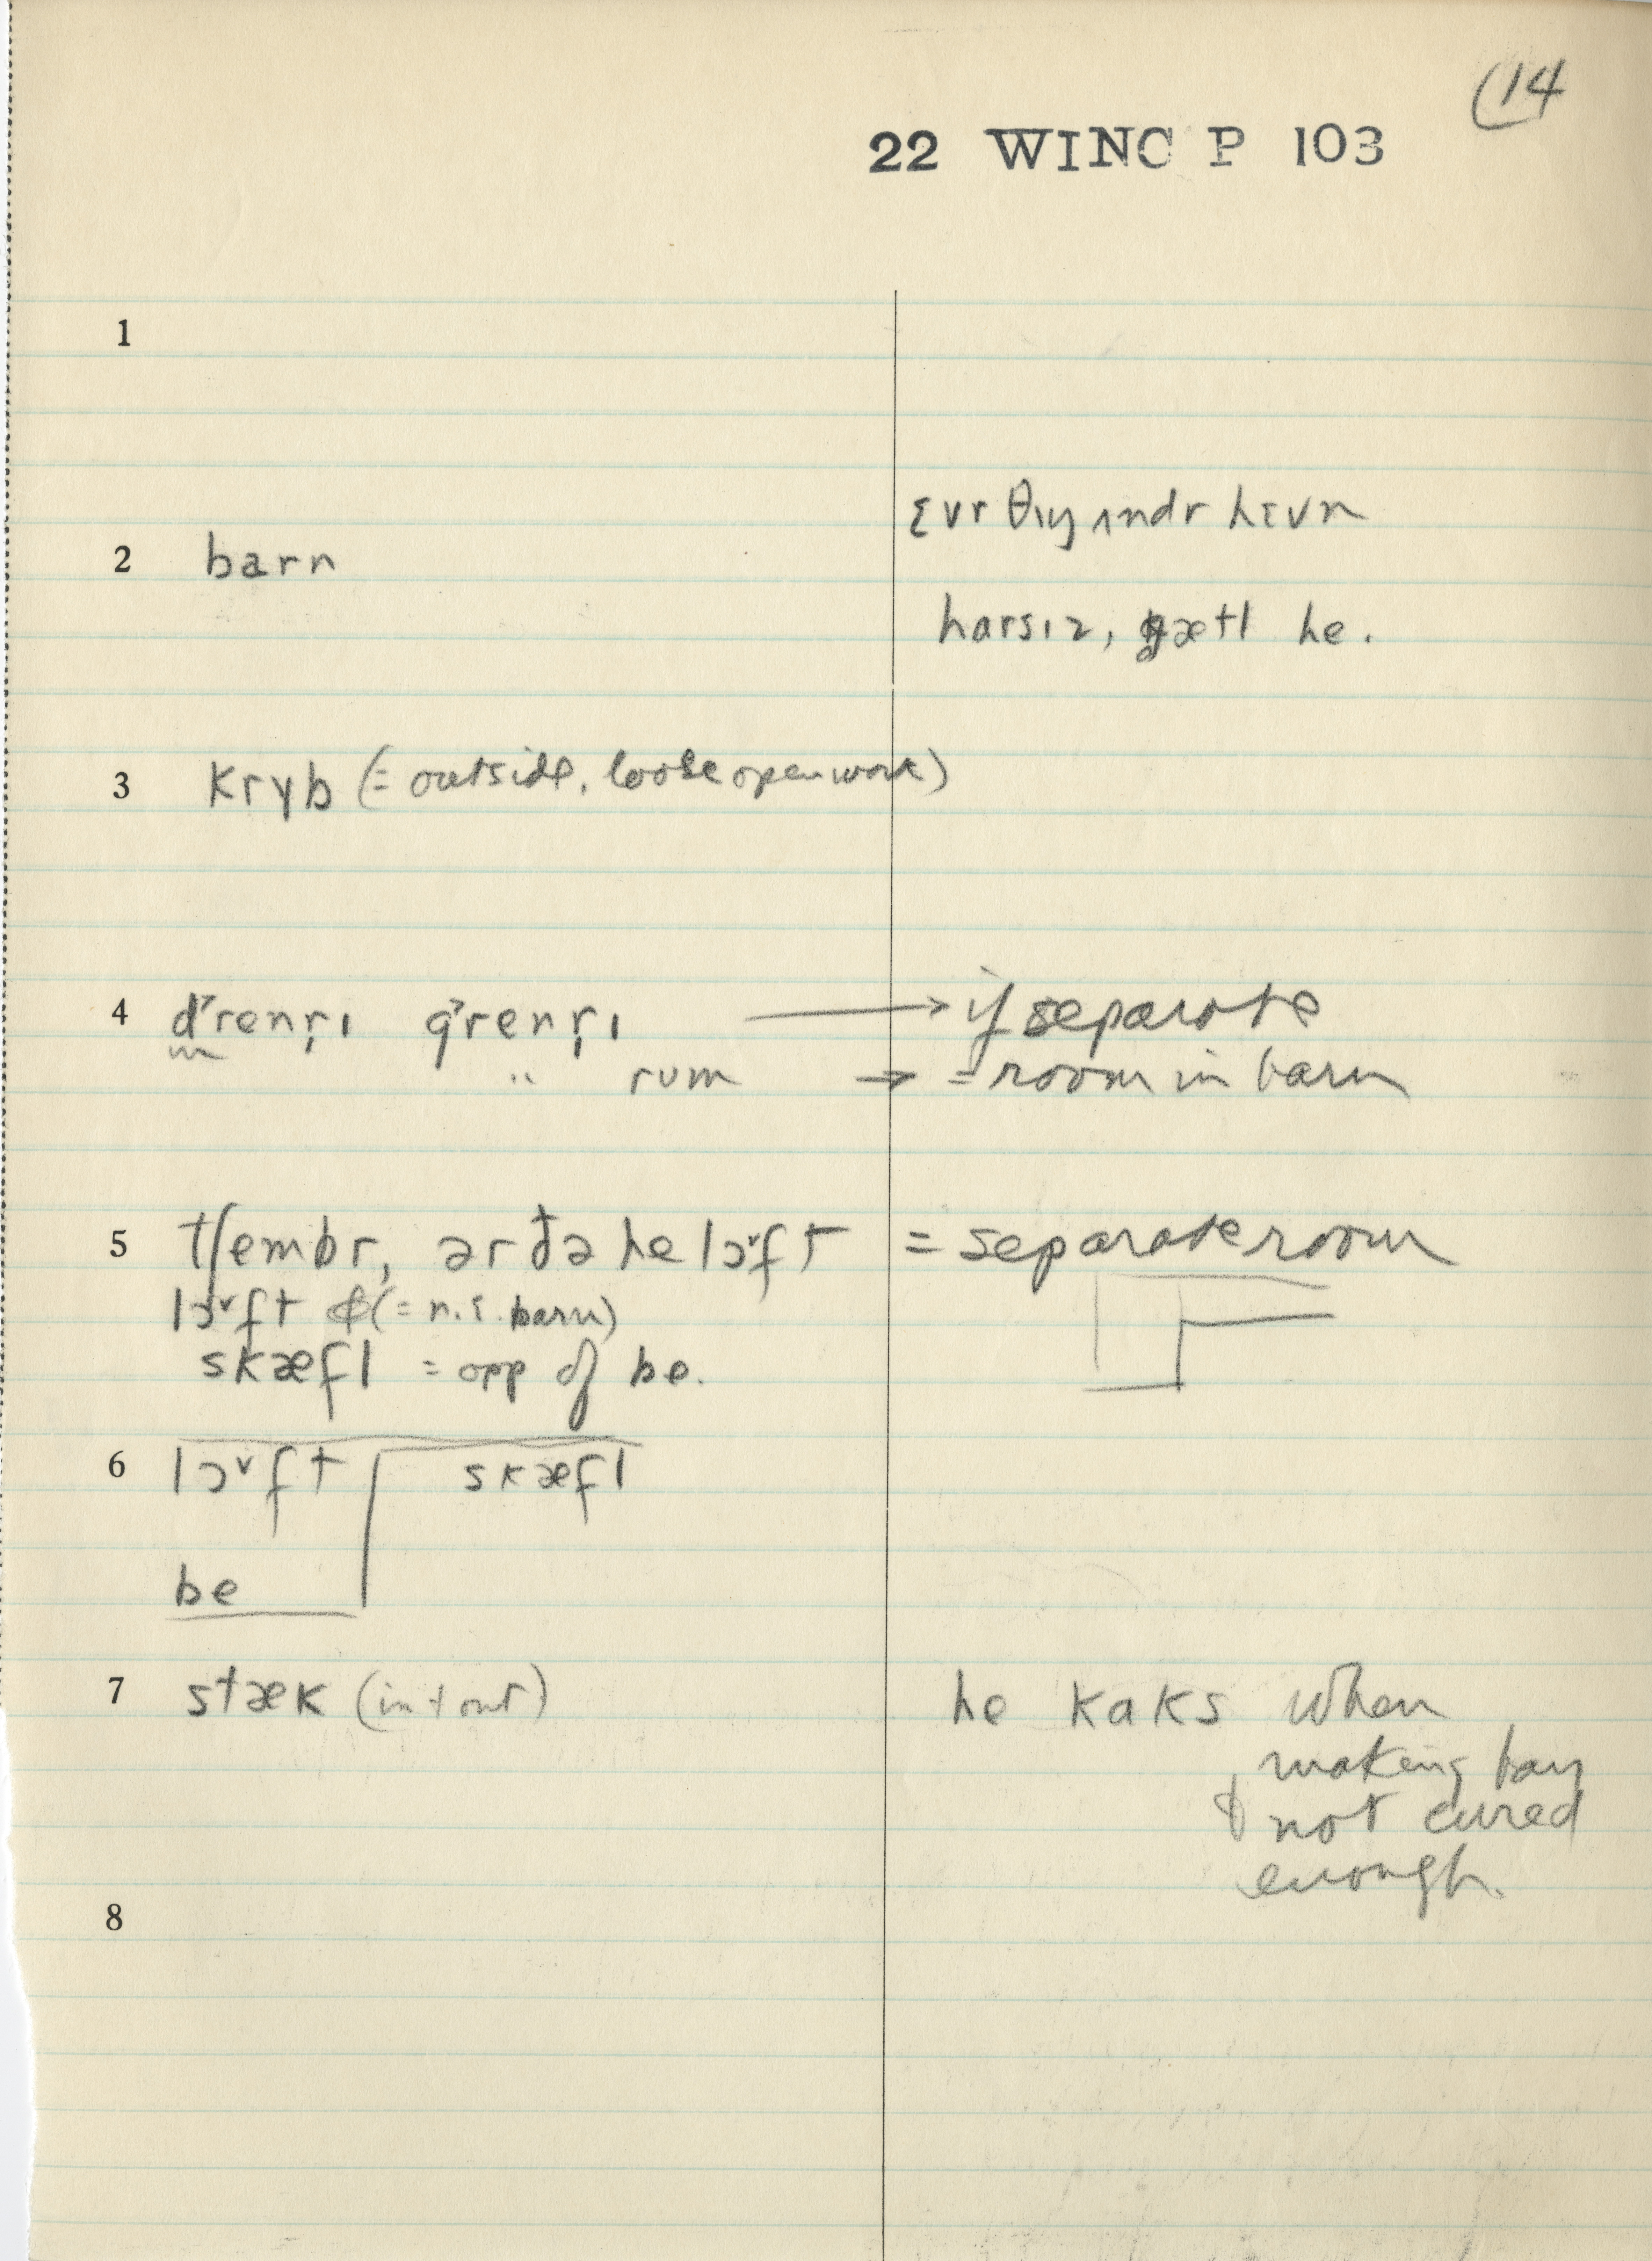 (14
22 WINC P 103
1
ɛvr θɪŋ ʌndr hɛvn
2 barn
harsɪz, kætl he.
3 kryb (= outside, loose open work)
4 grenrɪ → if separate
" rum → = room in barn
5 tʃembr, ər ðə he lɔˇft = separate room
lɔˇft (= n.s. barn)
skæfl = opp of be.
6 lɔˇft skæfl
be
7 stæk (in + out) he kaks when
making hay
& not cured
enough.
8